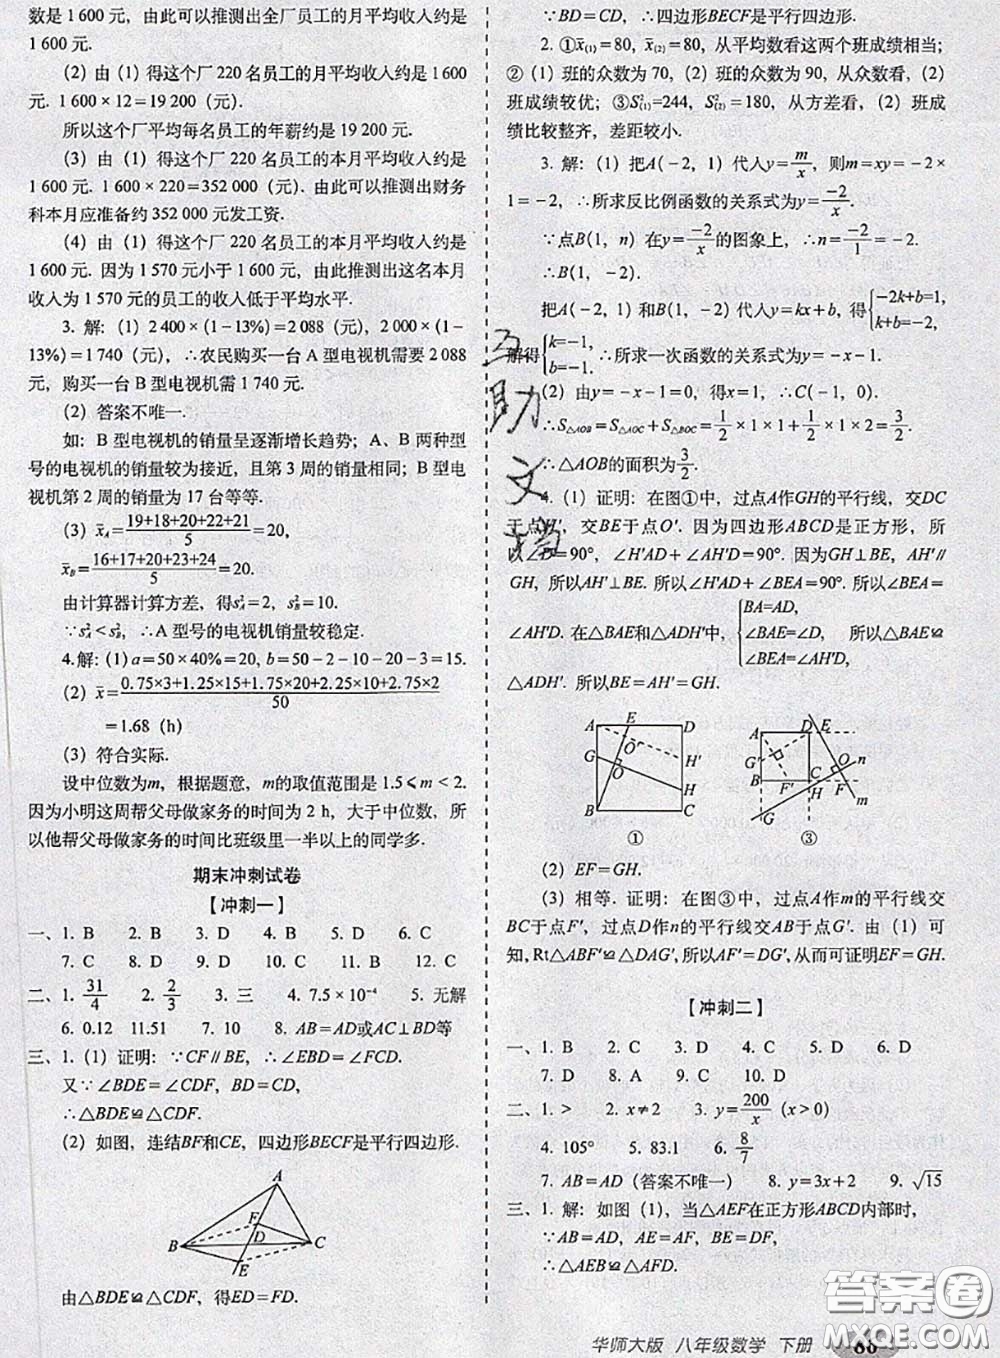 数是 1 600 元，由此可以推测出全厂员工的月平均收入约是
1 600 元.
(2) 由 (1) 得这个厂 220 名员工的月平均收入约是 1 600
元. 1 600 × 12 = 19 200 (元).
所以这个厂平均每名员工的年薪约是 19 200 元.
(3) 由 (1) 得这个厂 220 名员工的本月平均收入约是
1 600 元. 1 600 × 220 = 352 000 (元). 由此可以推测出财务
科本月应准备约 352 000 元发工资.
(4) 由 (1) 得这个厂 220 名员工的本月平均收入约是
1 600 元. 因为 1 570 元小于 1 600 元，由此推测出这名本月
收入为 1 570 元的员工的收入低于平均水平.
3. 解: (1) 2 400 × (1 − 13%) = 2 088 (元), 2 000 × (1 −
13%) = 1 740 (元), ∴农民购买一台 A 型电视机需要 2 088
元，购买一台 B 型电视机需 1 740 元.
(2) 答案不唯一.
如: B 型电视机的销量呈逐渐增长趋势; A、B 两种型
号的电视机的销量较为接近，且第 3 周的销量相同; B 型电
视机第 2 周的销量为 17 台等等.
(3) x̄A = (19+18+20+22+21)/5 = 20,
x̄B = (16+17+20+23+24)/5 = 20.
由计算器计算方差，得s²A = 2, s²B = 10.
∵s²A < s²B, ∴A 型号的电视机销量较稳定.
4.解: (1) a = 50 × 40% = 20, b = 50 − 2 − 10 − 20 − 3 = 15.
(2) x̄ = (0.75×3+1.25×15+1.75×20+2.25×10+2.75×2)/50
= 1.68 (h)
(3) 符合实际.
设中位数为m，根据题意，m的取值范围是 1.5 ⩽ m < 2.
因为小明这周帮父母做家务的时间为 2 h，大于中位数，所
以他帮父母做家务的时间比班级里一半以上的同学多.
期末冲刺试卷
【冲刺一】
一、1. B 2. B 3. D 4. D 5. B 6. C
7. C 8. D 9. D 10. C 11. B 12. C
二、1. 31/4 2. 2/3 3. 三 4. 7.5 × 10⁻⁴ 5. 无解
6. 0.12 11.51 7. 10 8. AB = AD或AC⊥BD等
三、1. (1) 证明: ∵CF∥BE, ∴∠EBD = ∠FCD.
又∵∠BDE = ∠CDF, BD = CD,
∴△BDE≌△CDF.
(2) 如图，连结BF和CE，四边形BECF是平行四边形.
A
F
D
B C
E
由△BDE≌△CDF, 得ED = FD.
∵BD = CD, ∴四边形BECF是平行四边形.
2. ①x̄(1) = 80, x̄(2) = 80, 从平均数看这两个班成绩相当;
②(1) 班的众数为 70, (2) 班的众数为 90, 从众数看, (2)
班成绩较优; ③S²(1)=244, S²(2)=180, 从方差看, (2) 班成
绩比较整齐，差距较小.
3. 解: (1) 把A(−2, 1) 代入y = m/x, 则m = xy = −2 ×
1 = −2, ∴所求反比例函数的关系式为y = −2/x.
∵点B(1, n) 在y = −2/x的图象上, ∴n = −2/1 = −2.
∴B(1, −2).
把A(−2, 1) 和B(1, −2) 代入y = kx + b, 得{−2k+b=1, k+b=−2,
解得{k=−1, b=−1. ∴所求一次函数的关系式为y = −x − 1.
(2) 由y = −x − 1 = 0, 得x = −1, ∴C(−1, 0).
∴S△AOB = S△AOC + S△BOC = 1/2 × 1 × 1 + 1/2 × 1 × 2 = 3/2.
∴△AOB的面积为3/2.
4. (1) 证明: 在图①中，过点A作GH的平行线，交DC
于点H′, 交BE于点O′. 因为四边形ABCD是正方形，所
以∠D = 90°, ∠H′AD + ∠AH′D = 90°. 因为GH⊥BE, AH′∥
GH, 所以AH′⊥BE. 所以∠H′AD + ∠BEA = 90°. 所以∠BEA =
∠AH′D. 在△BAE和△ADH′中, {BA=AD, ∠BAE=∠D, ∠BEA=∠AH′D, 所以△BAE≌
△ADH′. 所以BE = AH′ = GH.
A E D
O′
G O H′
H
B C
①
A D E
G′ O n
B F′ C H F m
G
③
(2) EF = GH.
(3) 相等. 证明: 在图③中，过点A作m的平行线交
BC于点F′, 过点D作n的平行线交AB于点G′. 由 (1) 可
知, Rt△ABF′≌△DAG′, 所以AF′ = DG′, 从而可证明EF = GH.
【冲刺二】
一、1. B 2. C 3. D 4. C 5. D 6. D
7. D 8. A 9. C 10. D
二、1. > 2. x ≠ 2 3. y = 200/x (x > 0)
4. 105° 5. 83.1 6. 8/7
7. AB = AD (答案不唯一) 8. y = 3x + 2 9. √15
三、1. 解: 如图 (1), 当△AEF在正方形ABCD内部时,
∵AB = AD, AE = AF, BE = DF,
∴△AEB≌△AFD.
华师大版 八年级数学 下册
互助文档
答案圈